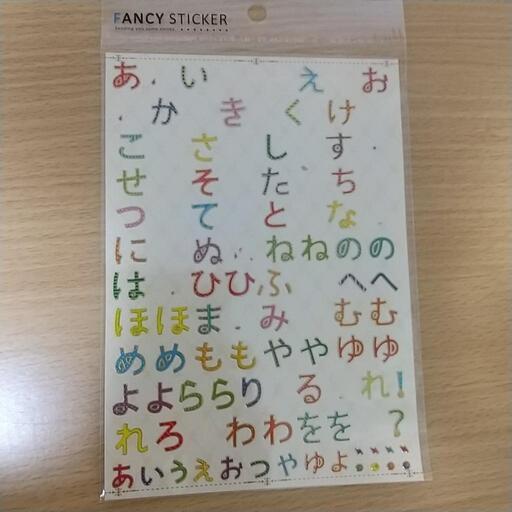 FANCY STICKER
Sending you some smiles
あ い え お
か き く け
こ さ し す
せ そ た ち
つ て と な
に ぬ ねねのの
は ひひふ へへ
ほほま み むむ
めめももややゆゆ
よよららり る れ!
れろ わわをを ?
あいうえおつやゆよ